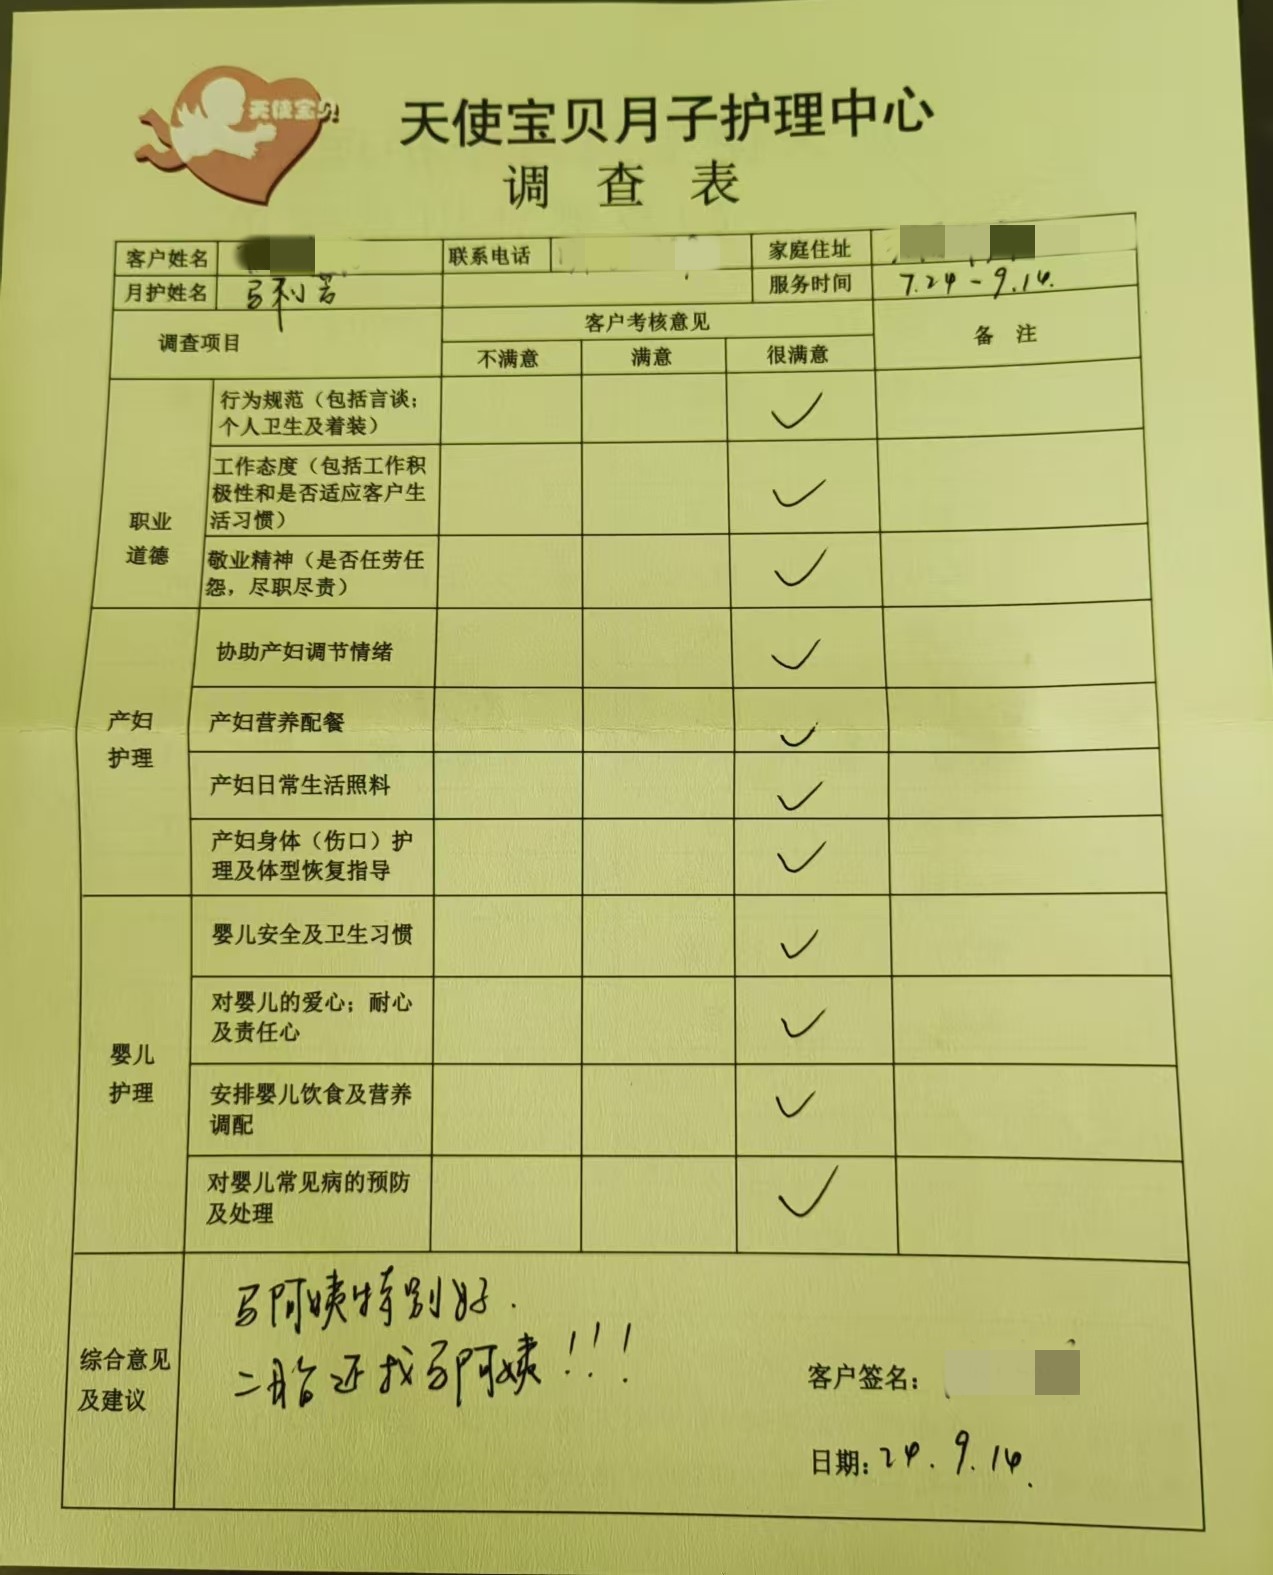 天使宝贝
天使宝贝月子护理中心
调 查 表
客户姓名 联系电话 家庭住址
月护姓名 马利芳 服务时间 7.24-9.14.
调查项目 客户考核意见 备 注
不满意 满意 很满意
职业
道德
行为规范（包括言谈；
个人卫生及着装） ✓
工作态度（包括工作积
极性和是否适应客户生
活习惯） ✓
敬业精神（是否任劳任
怨，尽职尽责） ✓
产妇
护理
协助产妇调节情绪 ✓
产妇营养配餐 ✓
产妇日常生活照料 ✓
产妇身体（伤口）护
理及体型恢复指导 ✓
婴儿
护理
婴儿安全及卫生习惯 ✓
对婴儿的爱心；耐心
及责任心 ✓
安排婴儿饮食及营养
调配 ✓
对婴儿常见病的预防
及处理 ✓
综合意见
及建议
马阿姨特别好.
二胎还找马阿姨!!!
客户签名：
日期：24.9.14.